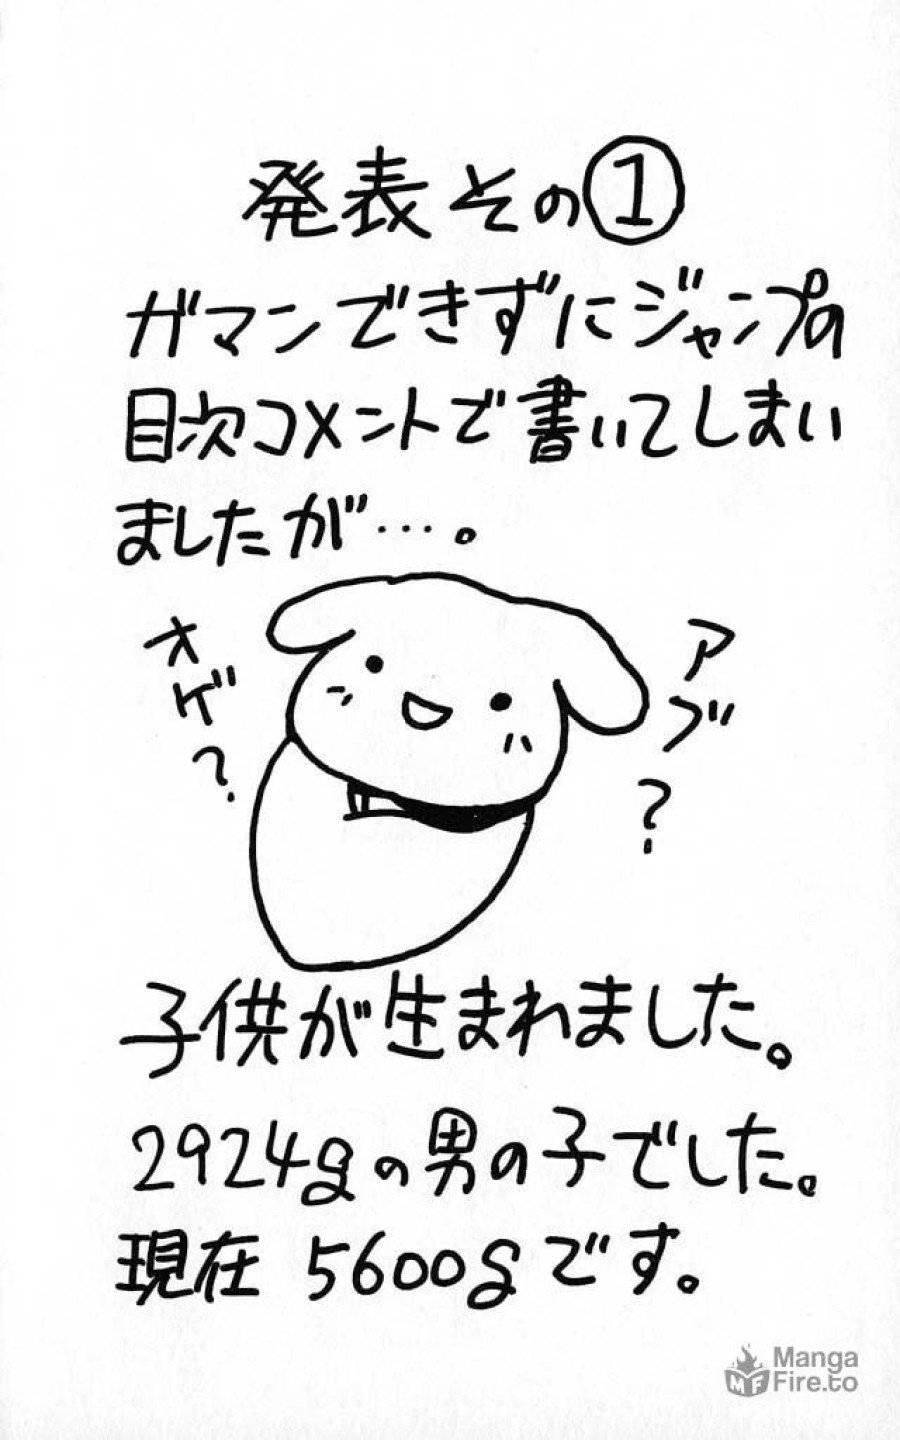 発表その①
ガマンできずにジャンプの
目次コメントで書いてしまい
ましたが…。
オゲ?
アブ?
子供が生まれました。
2924gの男の子でした。
現在 5600gです。
Manga
Fire.to
MF